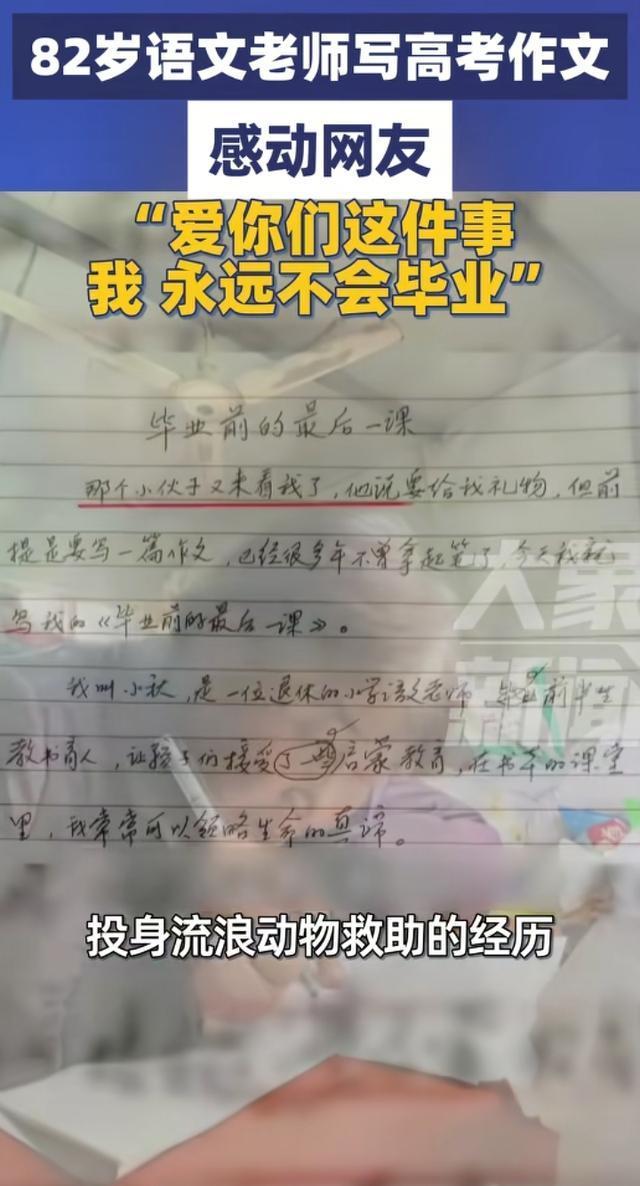 82岁语文老师写高考作文
感动网友
“爱你们这件事
我 永远不会毕业”
毕业前的最后一课
那个小伙子又来看我了，他说要给我礼物，但前
提是要写一篇作文，已经很多年不曾拿起笔了，今天我就
写我的《毕业前的最后一课》。
大象
新闻
我叫小秋，是一位退休的小学语文老师，毕业前半生
教书育人，让孩子们接受了一些启蒙教育，在书本的课堂
里，我常常可以领略生命的真谛。
投身流浪动物救助的经历